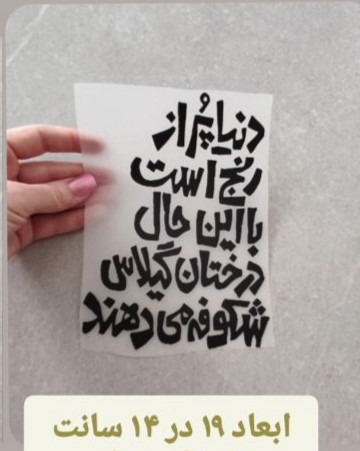 دنیا پُر از
رنج است
با این حال
درختان گیلاس
شکوفه می دهند
ابعاد ۱۹ در ۱۴ سانت